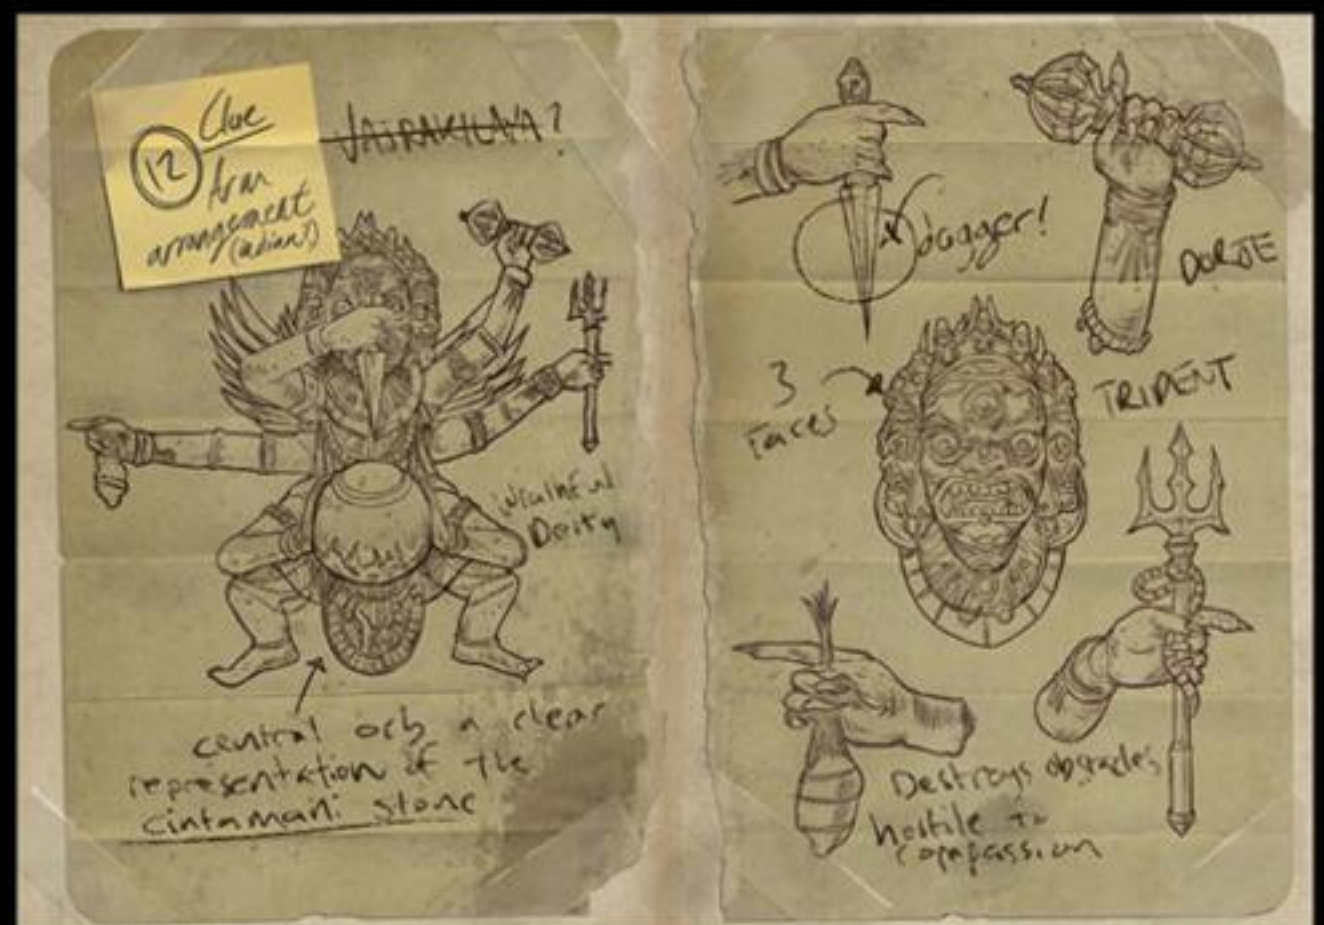 Clue
12
Arm
arrangement
VAJRAKILAYA?
Wrathful
Deity
central orb a clear
representation of the
cintamani stone
dagger!
DORJE
3
Faces
TRIDENT
Destroys obstacles
hostile to
compassion